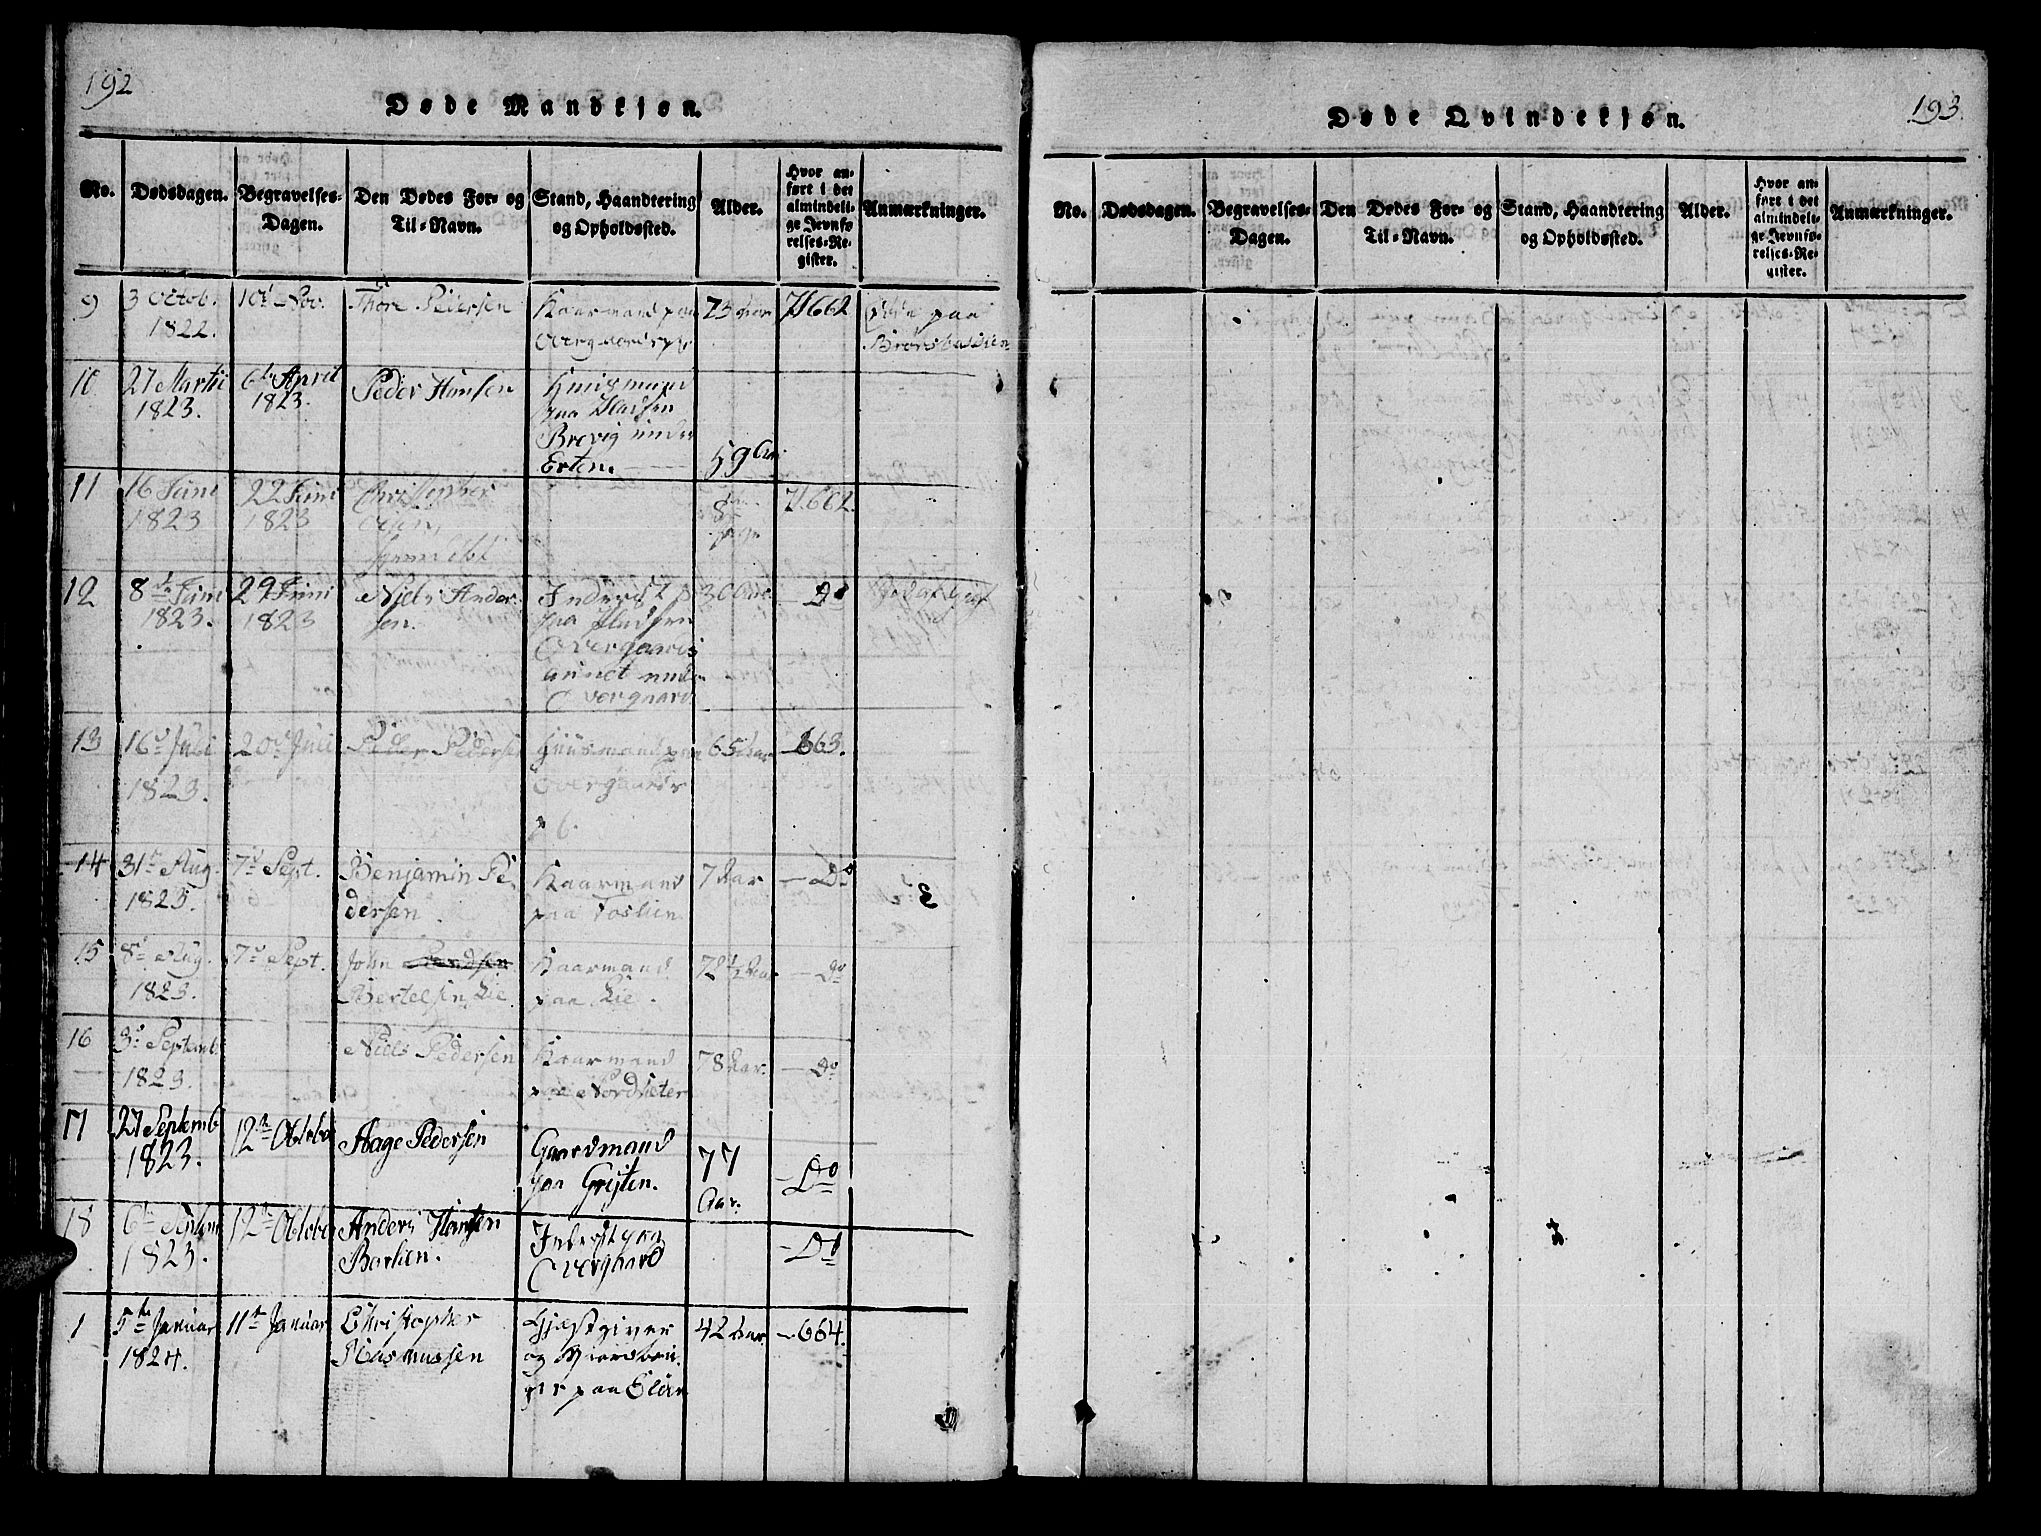 192
Døde Mandkjøn.
No.
Dødsdagen.
Begravelses-
Dagen.
Den Dødes For- og
Til-Navn.
Stand, Haandtering
og Opholdssted.
Alder.
Hvor an-
ført i det
almindeli-
ge Jevnfø-
relses-Re-
gister.
Anmærkninger.
9
3 Octob.
1822.
10d Nov.
Thore Pedersen
Kaarmand paa
73 Aar
662
paa
10
27 Martii
1823.
6te April
1823.
Peder Hansen
Huusmand
paa Pladsen
Brevig under
Erten.
59 Aar
11
16 Juni
1823
22 Juni
1823
Christopher
8
662.
12
8de Juni
1823.
29 Juni
1823
Niels Ander-
sen.
Inderst
paa Pladsen
Overgaards
under
Overgaard
30 Aar
Do
13
16d Juli
1823.
20d Juli
Peder Pedersen
Huusmand paa
65 Aar
663.
14
31te Aug.
1823.
7d Sept.
Benjamin Pe-
dersen.
Kaarmand
paa
7 Aar
Do
15
8d Aug.
1823.
7d Sept.
John
Bertelsen Lie
Kaarmand
paa Lie.
72½ Aar
Do
16
3d Septemb.
1823.
Niels Pedersen
Kaarmand
paa Nordseter
78 Aar.
Do
17
27 Septemb
1823.
12te Octobr
Aage Pedersen
Gaardmand
paa Grijten.
77
Aar.
Do
18
6te Septem
1823.
12te Octobr
Anders Hansen
Barlien.
Inderst paa
Overgaard
Do
1
5te Januar
1824.
11te Januar
Christopher
Rasmussen
Gjæstgiver
og
paa
42 Aar.
664.
193.
Døde Qvindekjøn.
No.
Dødsdagen.
Begravelses-
Dagen.
Den Dødes For- og
Til-Navn.
Stand, Haandtering
og Opholdssted.
Alder.
Hvor an-
ført i det
almindeli-
ge Jevnfø-
relses-Re-
gister.
Anmærkninger.